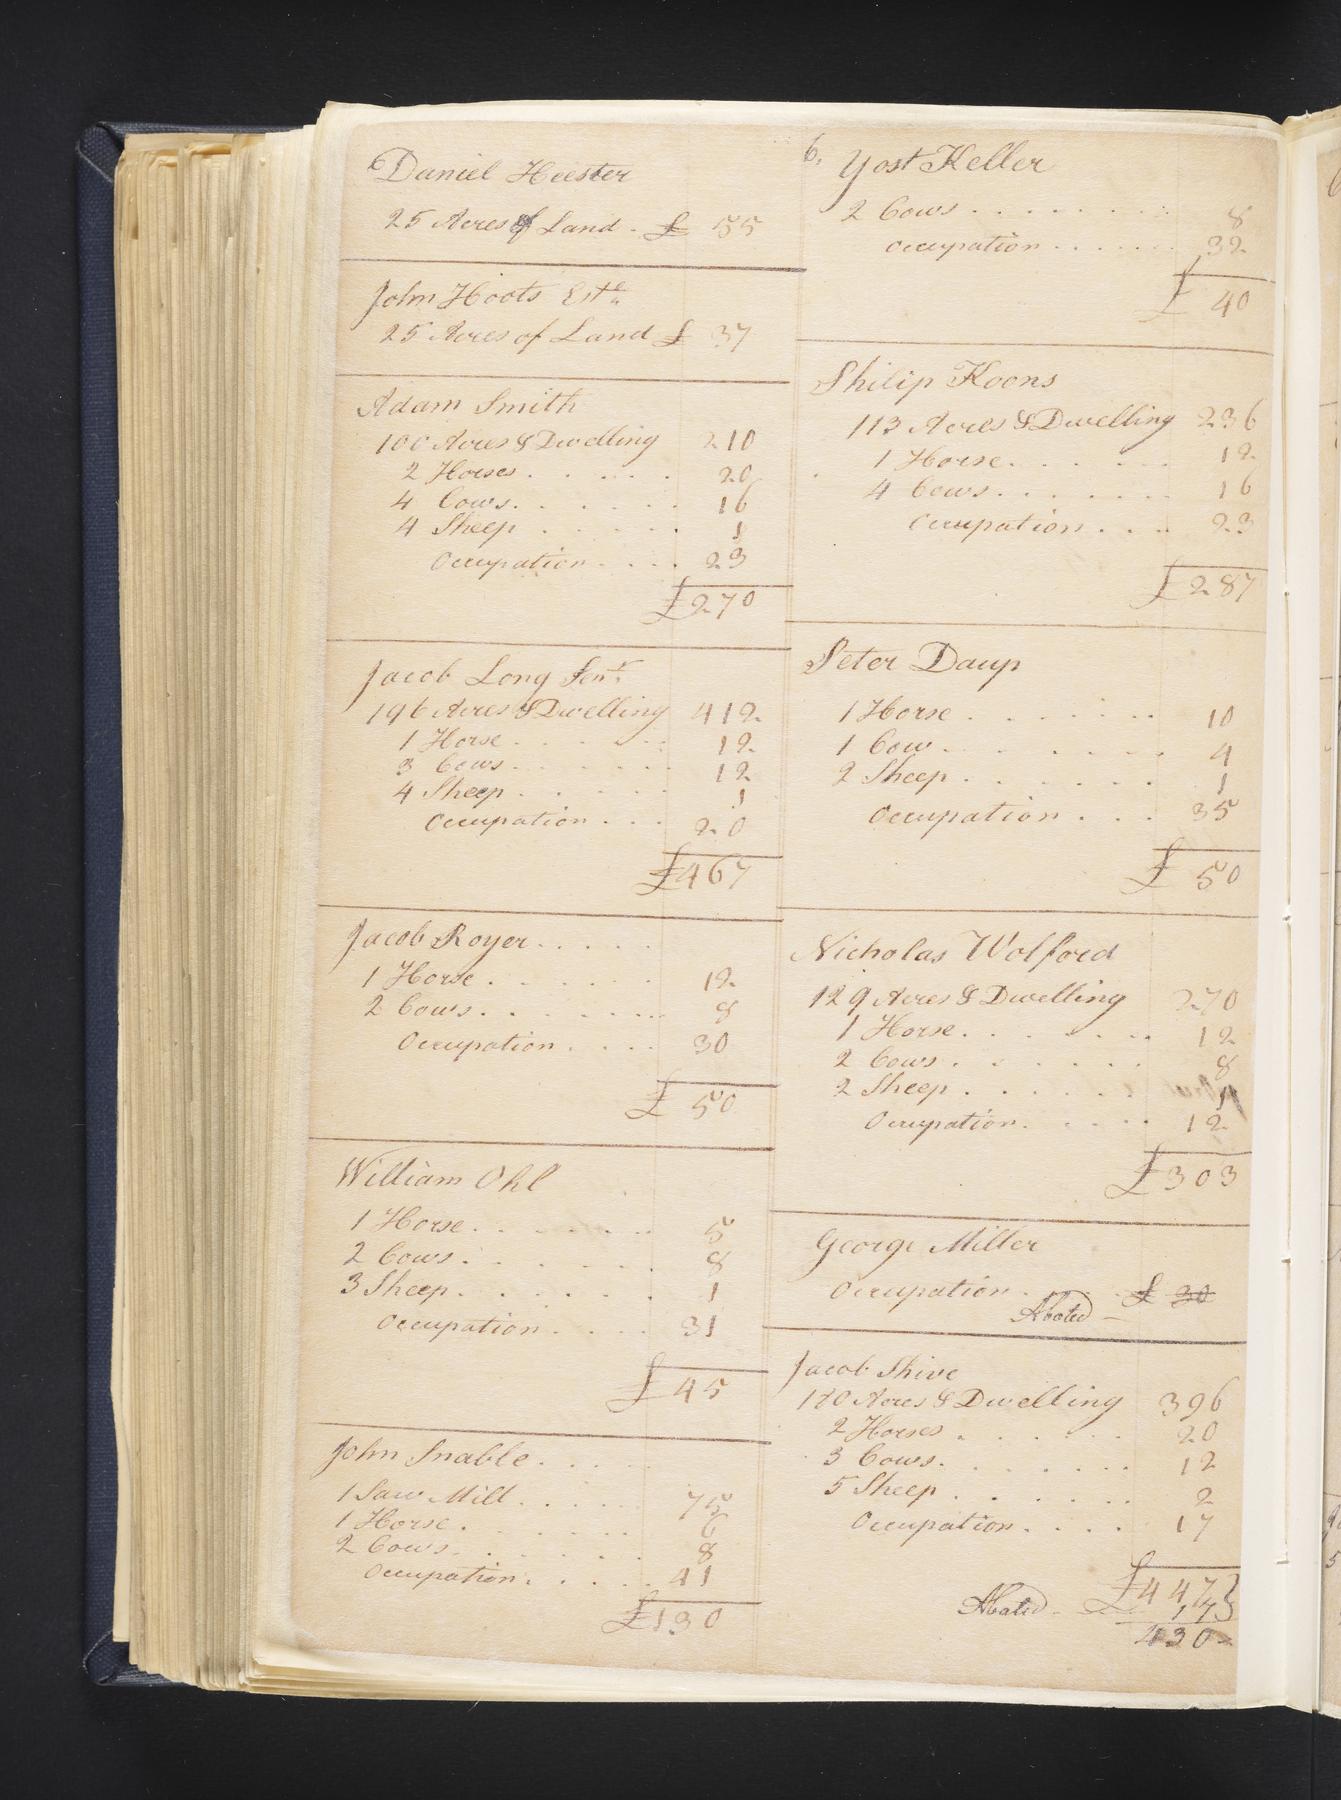 6
Daniel Heester
25 Acres of Land - £ 55
John Hoots Este
25 Acres of Land £ 37
Adam Smith
100 Acres & Dwelling 210
2 Horses . . . . . 20
4 Cows . . . . . . 16
4 Sheep . . . . . 1
Occupation . . . . 23
£270
Jacob Long Senr.
196 Acres & Dwelling 412
1 Horse . . . . . . 12
3 Cows . . . . . . 12
4 Sheep . . . . . . 1
Occupation . . . 20
£467
Jacob Royer . . . . .
1 Horse . . . . . . 12
2 Cows . . . . . . . 8
Occupation . . . . 30
£ 50
William Ohl
1 Horse . . . . . . 5
2 Cows . . . . . . 8
3 Sheep . . . . . . 1
Occupation . . . . 31
£ 45
John Snable . . . .
1 Saw Mill . . . . . 75
1 Horse . . . . . . 6
2 Cows . . . . . . 8
Occupation . . . . . 41
£130
6.
Yost Keller
2 Cows . . . . . . . . 8
Occupation . . . . . . 32
£ 40
Philip Koons
113 Acres & Dwelling 236
1 Horse . . . . . . 12
4 Cows . . . . . . . 16
Occupation . . . . 23
£287
Peter Daup
1 Horse . . . . . . . 10
1 Cow . . . . . . 4
2 Sheep . . . . . . 1
Occupation . . . 35
£ 50
Nicholas Wolford
129 Acres & Dwelling 270
1 Horse . . . . . . 12
2 Cows . . . . . . 8
2 Sheep . . . . . . 1
Occupation . . . . . 12
£303
George Miller
Occupation . . . . £ 30
Abated -
Jacob Shive
180 Acres & Dwelling 396
2 Horses . . . . . 20
3 Cows . . . . . . . 12
5 Sheep . . . . . . 2
Occupation . . . . 17
£447
Abated - 17
430